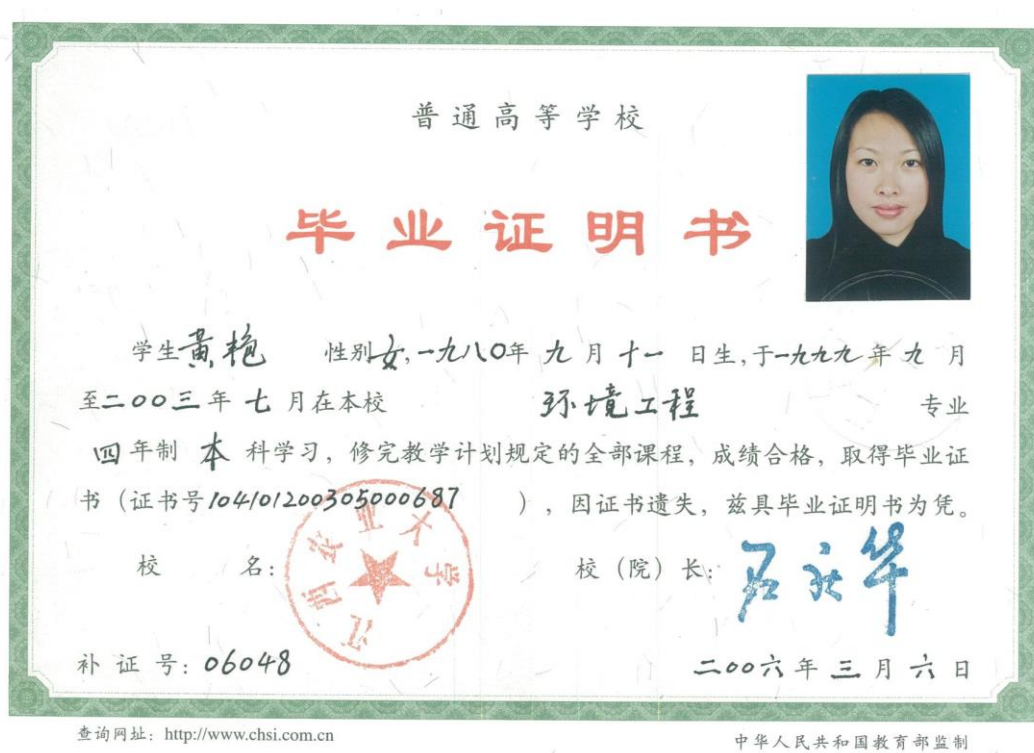 普通高等学校
毕业证明书
学生黄艳 性别女,一九八〇年九月十一日生,于一九九九年九月
至二〇〇三年七月在本校 环境工程 专业
四年制本科学习,修完教学计划规定的全部课程,成绩合格,取得毕业证
书(证书号104101200305000687 ),因证书遗失,兹具毕业证明书为凭。
校 名: 江西农业大学 校(院)长:
补证号:06048 二〇〇六年三月六日
查询网址:http://www.chsi.com.cn 中华人民共和国教育部监制